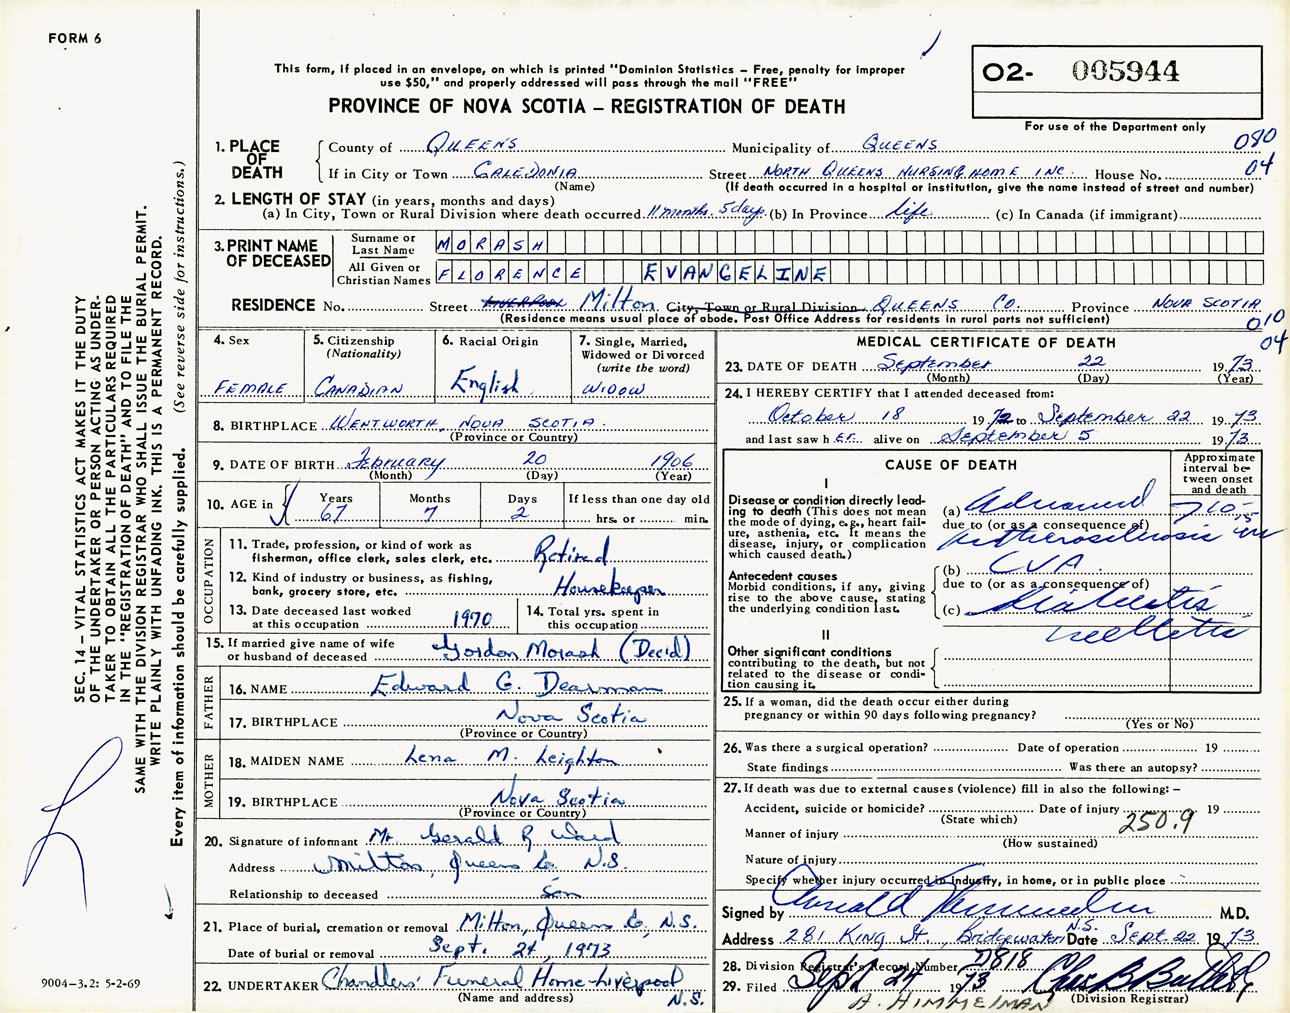 FORM 6
This form, if placed in an envelope, on which is printed "Dominion Statistics – Free, penalty for improper
use $50," and properly addressed will pass through the mail "FREE"
PROVINCE OF NOVA SCOTIA – REGISTRATION OF DEATH
02- 005944
For use of the Department only
080
04
1. PLACE OF DEATH
County of QUEENS Municipality of QUEENS
If in City or Town CALEDONIA Street NORTH QUEENS NURSING HOME INC. House No.
(Name) (If death occurred in a hospital or institution, give the name instead of street and number)
2. LENGTH OF STAY (in years, months and days)
(a) In City, Town or Rural Division where death occurred 11 months. 5 days. (b) In Province life. (c) In Canada (if immigrant)
3. PRINT NAME OF DECEASED
Surname or Last Name MORASH
All Given or Christian Names FLORENCE EVANGELINE
RESIDENCE No. Street LIVERPOOL Milton City, Town or Rural Division QUEENS CO. Province NOVA SCOTIA
(Residence means usual place of abode. Post Office Address for residents in rural parts not sufficient)
010
04
4. Sex FEMALE
5. Citizenship (Nationality) CANADIAN
6. Racial Origin English
7. Single, Married, Widowed or Divorced (write the word) WIDOW
8. BIRTHPLACE WENTWORTH, NOVA SCOTIA.
(Province or Country)
9. DATE OF BIRTH February 20 1906
(Month) (Day) (Year)
10. AGE in Years 67 Months 7 Days 2 If less than one day old hrs. or min.
OCCUPATION
11. Trade, profession, or kind of work as
fisherman, office clerk, sales clerk, etc. Retired
12. Kind of industry or business, as fishing,
bank, grocery store, etc. Housekeeper
13. Date deceased last worked
at this occupation 1970
14. Total yrs. spent in
this occupation
15. If married give name of wife
or husband of deceased Gordon Morash (Decid)
FATHER
16. NAME Edward G. Dearman
17. BIRTHPLACE Nova Scotia
(Province or Country)
MOTHER
18. MAIDEN NAME Lena M. Leighton
19. BIRTHPLACE Nova Scotia
(Province or Country)
20. Signature of informant Mr. Gerald R Ward
Address Milton, Queens Co. N.S.
Relationship to deceased Son
21. Place of burial, cremation or removal Milton, Queens Co, N.S.
Date of burial or removal Sept. 24, 1973
22. UNDERTAKER Chandlers' Funeral Home-Liverpool
(Name and address) N.S.
MEDICAL CERTIFICATE OF DEATH
23. DATE OF DEATH September 22 1973
(Month) (Day) (Year)
24. I HEREBY CERTIFY that I attended deceased from:
October 18 1972 to September 22 1973
and last saw h er alive on September 5 1973
CAUSE OF DEATH
Approximate interval between onset and death
I
Disease or condition directly lead-
ing to death (This does not
mean the mode of dying, e.g., heart fail-
ure, asthenia, etc. It means the
disease, injury, or complication
which caused death.)
(a) Advanced
due to (or as a consequence of)
Antecedent causes
Morbid conditions, if any, giving
rise to the above cause, stating
the underlying condition last.
(b) CVA
due to (or as a consequence of)
(c) Diabetes
mellitus
II
Other significant conditions
contributing to the death, but not
related to the disease or condi-
tion causing it.
25. If a woman, did the death occur either during
pregnancy or within 90 days following pregnancy?
(Yes or No)
26. Was there a surgical operation? Date of operation 19
State findings Was there an autopsy?
27. If death was due to external causes (violence) fill in also the following: –
Accident, suicide or homicide? Date of injury 19
(State which) 250.9
Manner of injury
(How sustained)
Nature of injury
Specify whether injury occurred in industry, in home, or in public place
Signed by M.D.
Address 281 King St., Bridgewater N.S. Date Sept. 22 1973
28. Division Registrar's Record Number 7818
29. Filed Sept 24 1973
(Division Registrar)
A. HIMMELMAN
SEC. 14 – VITAL STATISTICS ACT MAKES IT THE DUTY
OF THE UNDERTAKER OR PERSON ACTING AS UNDER-
TAKER TO OBTAIN ALL THE PARTICULARS REQUIRED
IN THE "REGISTRATION OF DEATH" AND TO FILE THE
SAME WITH THE DIVISION REGISTRAR WHO SHALL ISSUE THE BURIAL PERMIT.
WRITE PLAINLY WITH UNFADING INK. THIS IS A PERMANENT RECORD.
Every item of information should be carefully supplied. (See reverse side for instructions.)
9004-3.2: 5-2-69